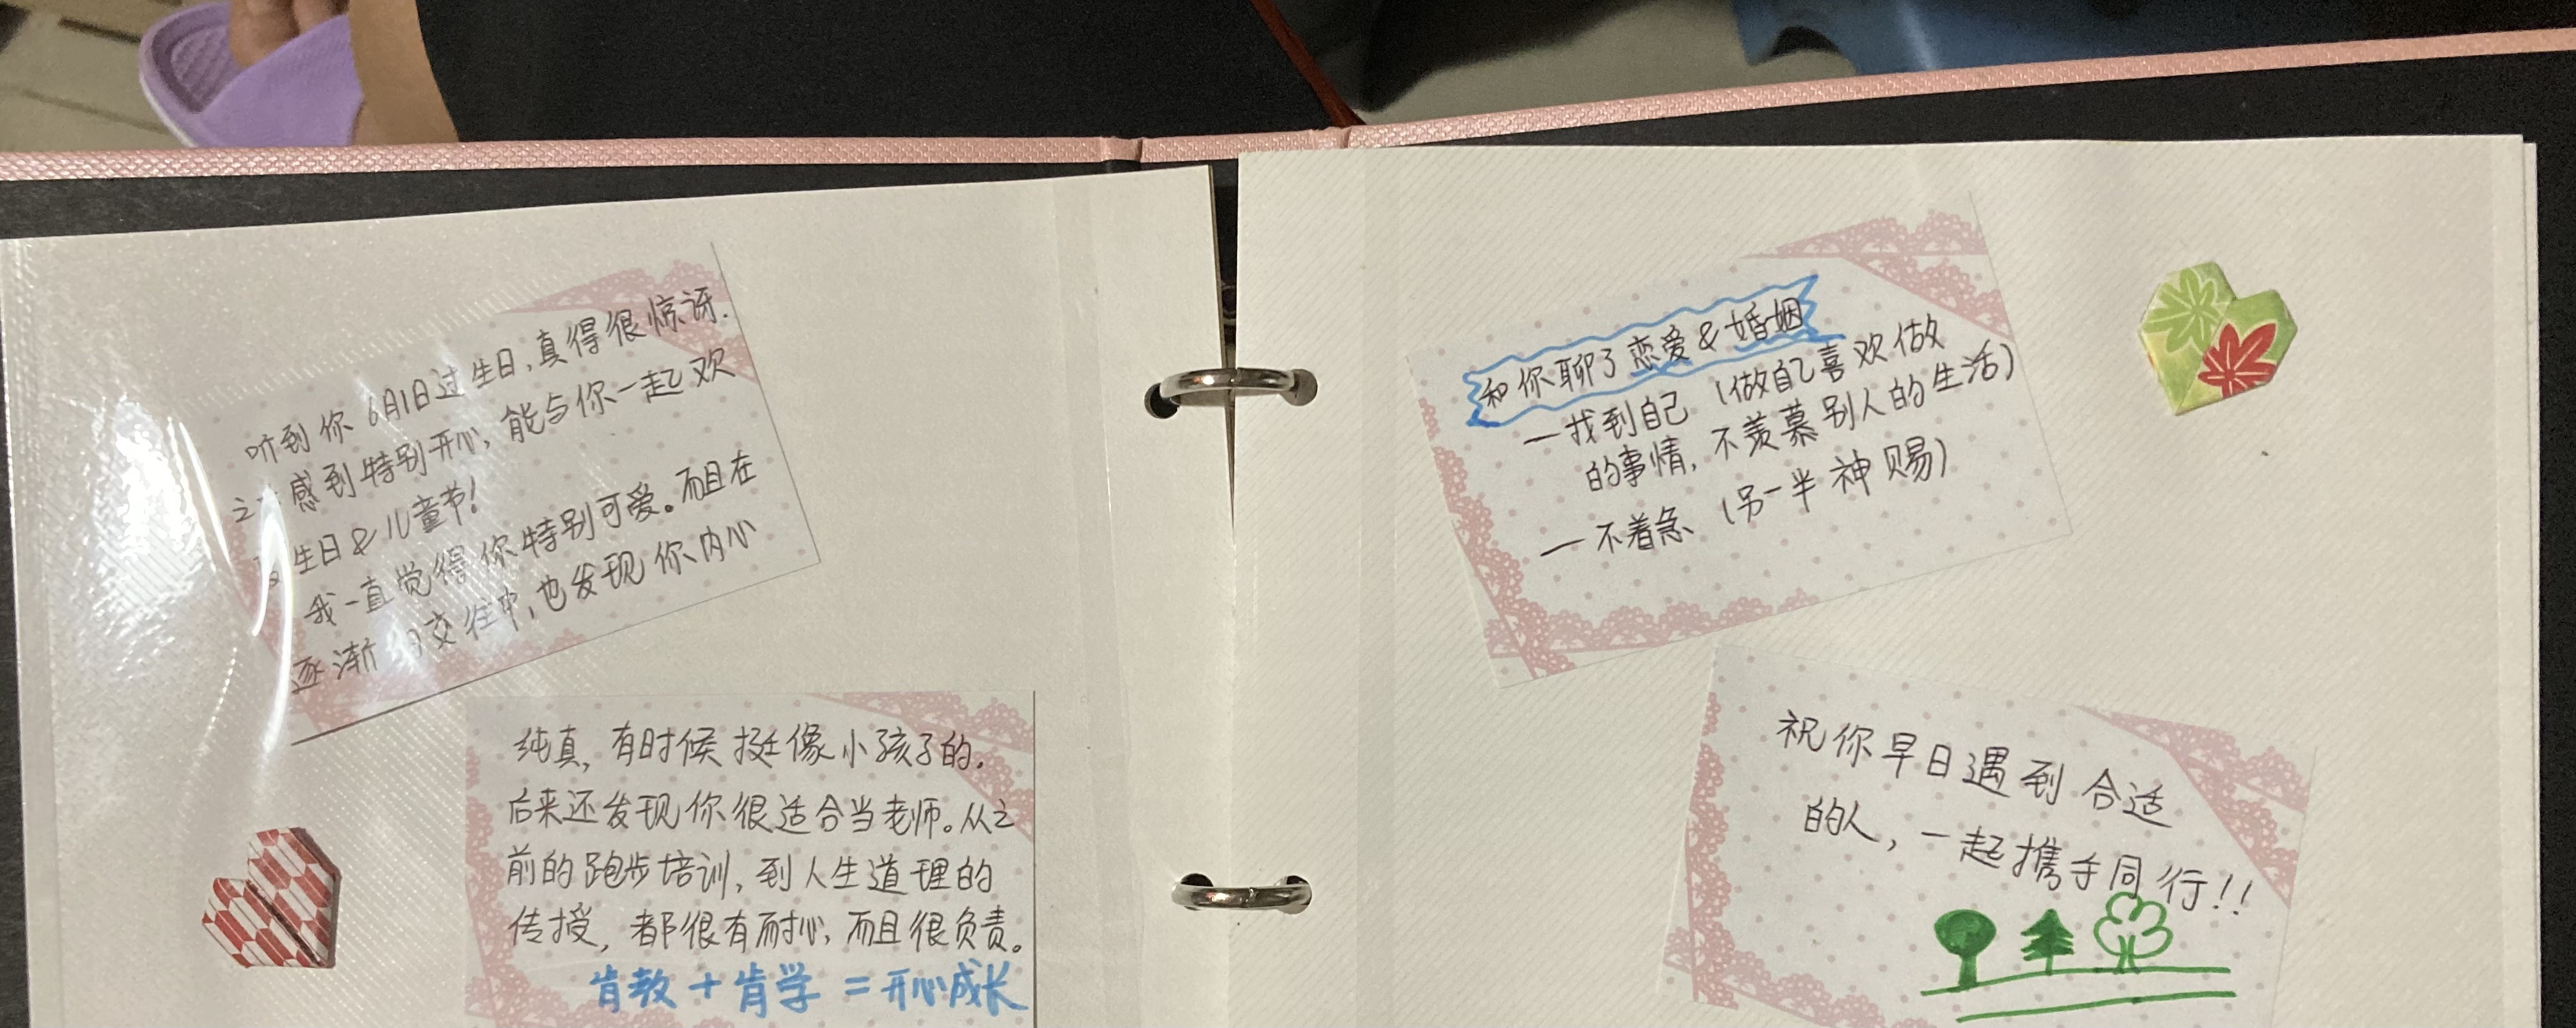 听到你6月1日过生日,真得很惊讶.
之 感到特别开心,能与你一起欢
生日&儿童节!
我一直觉得你特别可爱。而且在
逐渐的交往中,也发现你内心
纯真,有时候挺像小孩子的.
后来还发现你很适合当老师。从之
前的跑步培训,到人生道理的
传授,都很有耐心,而且很负责。
肯教+肯学=开心成长
和你聊了恋爱&婚姻
—找到自己(做自己喜欢做
的事情,不羡慕别人的生活)
—不着急(另一半神赐)
祝你早日遇到合适
的人,一起携手同行!!